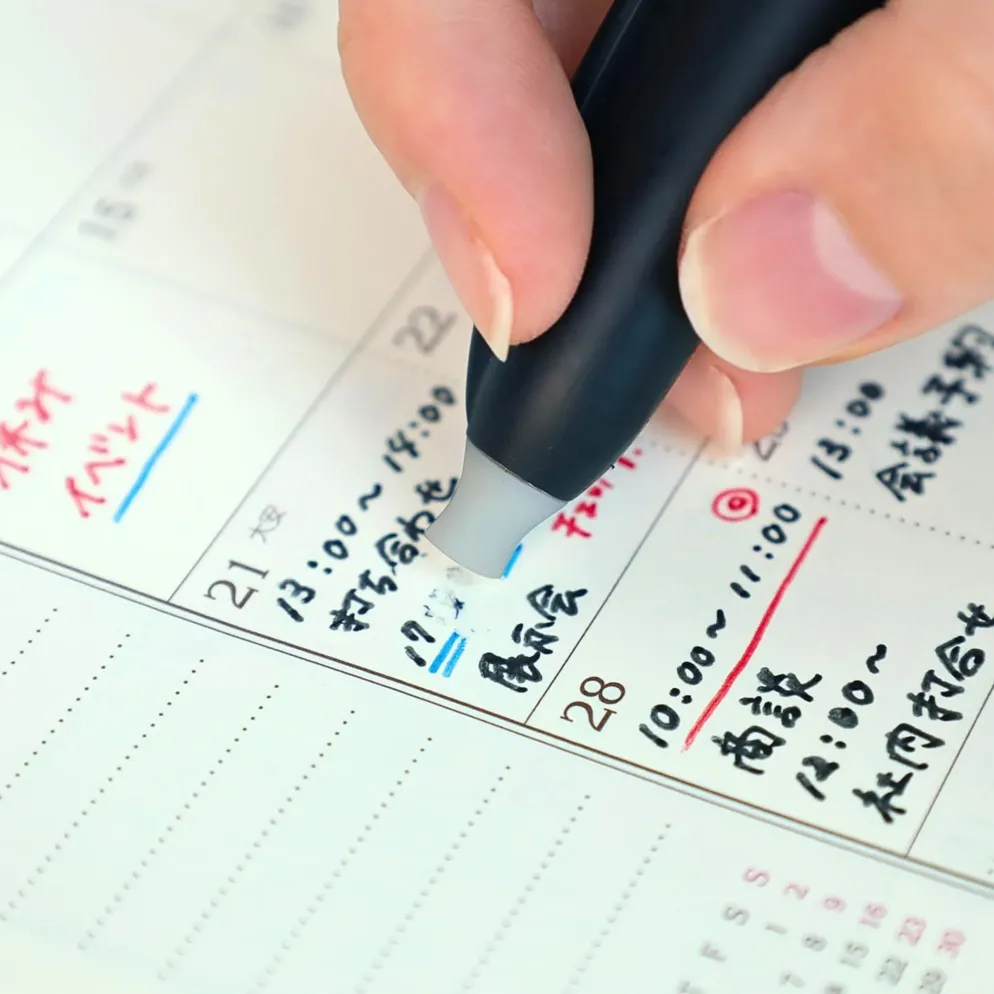 休み
イベント
15
22
21
大安
13:00~14:00
打ち合わせ
17
展示会
28
10:00~11:00
商談
12:00~
社内打合せ
13:00
会議予約
S 2 9 16 23 30
S 1 8 15 22 29
F 7
T